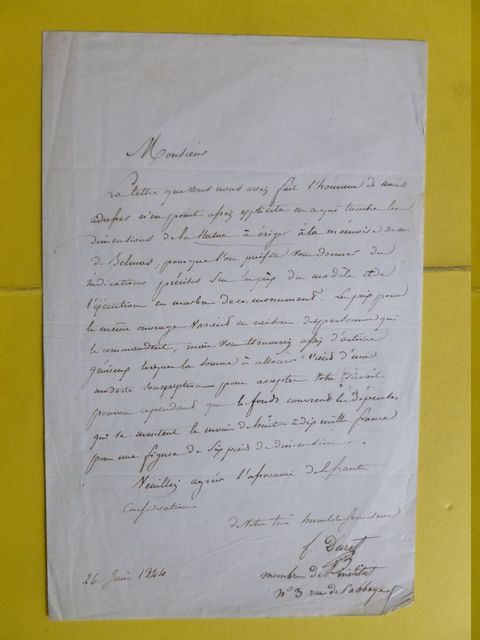 Monsieur
La lettre que vous nous avez fait l'honneur de nous
adresser n'est point assez explicite en ce qui touche les
dimensions de la statue à ériger à la mémoire de m.
de Belmas, pour que l'on puisse vous donner des
indications précises sur le prix du modèle et de
l'exécution en marbre de ce monument. Le prix pour
le même ouvrage varient en raison des personnes qui
le commandent, mais vous trouverez assez d'artistes
généreux lorsque la somme à allouer vient d'une
modeste souscription pour accepter votre travail
pourvu cependant que le fonds couvrent les dépenses
qui se montent le moins de huit à dix mille francs
pour une figure de six pieds de dimension.
Veuillez agréer l'assurance de la haute
considération
de votre très humble serviteur
f. Duret
membre de l'institut
n° 3 rue de l'abbaye
26 Juin 1844